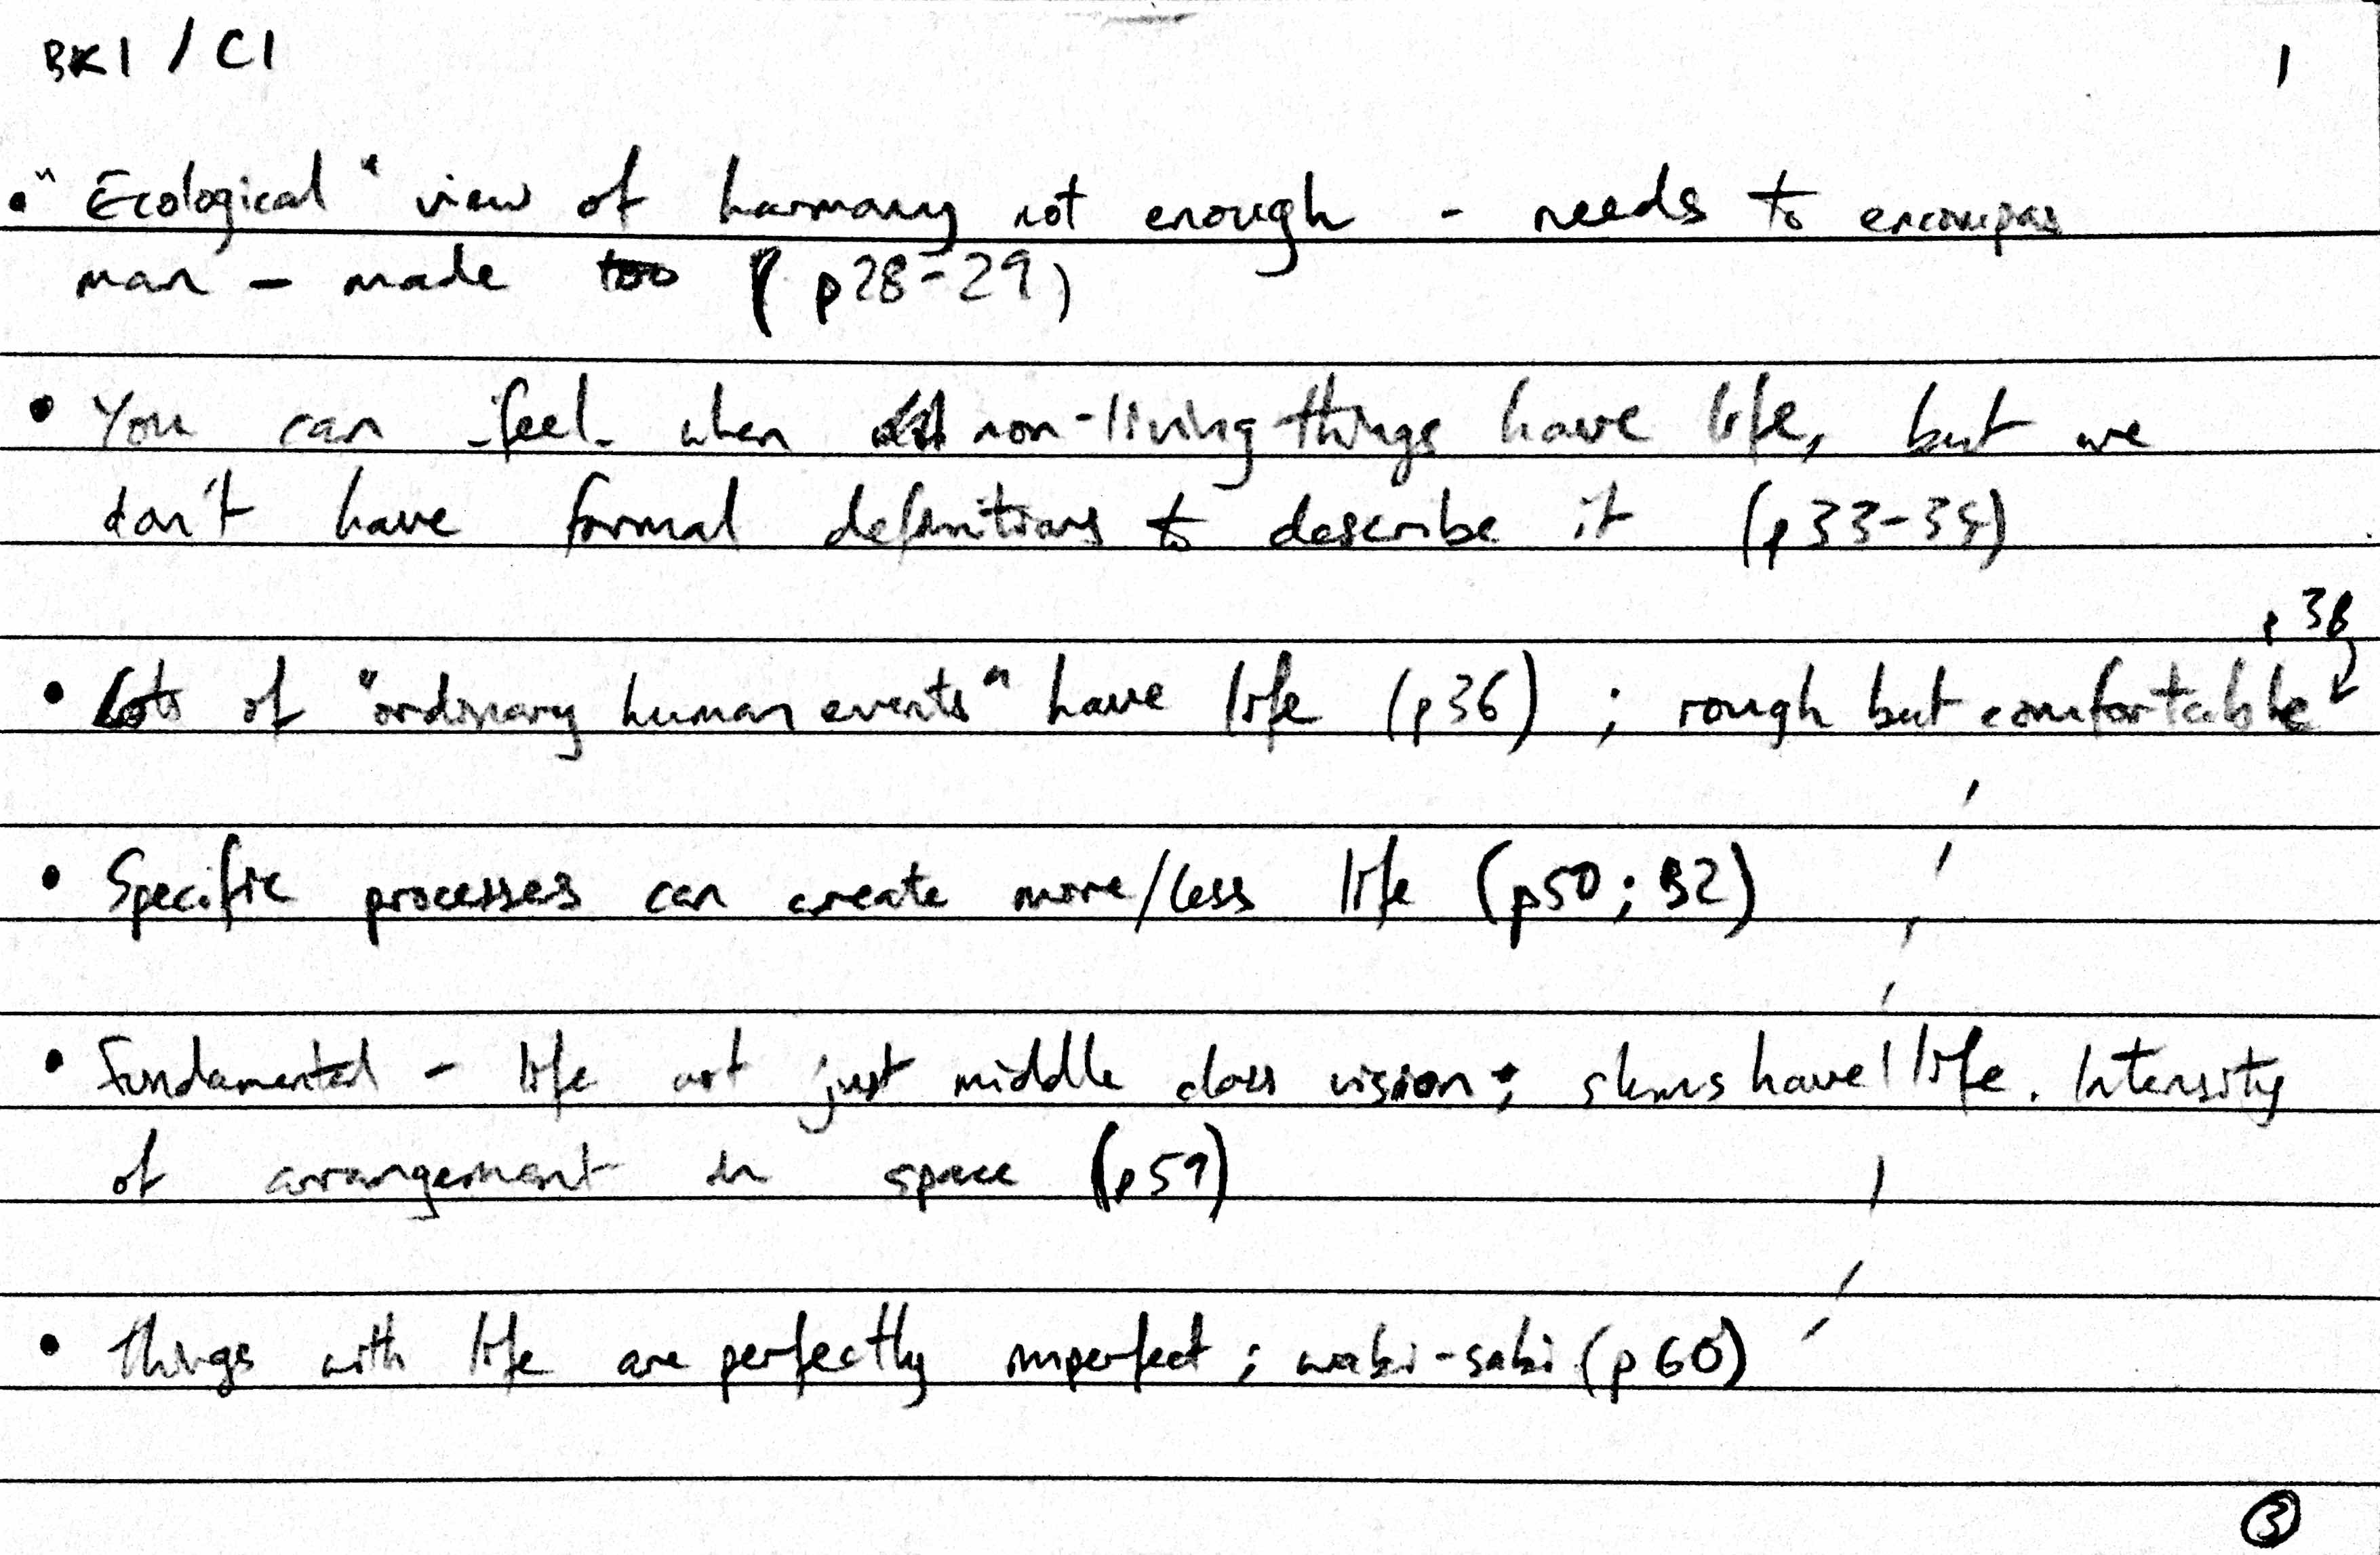 BK1 / C1
1
• "Ecological" view of harmony not enough - needs to encompass
man - made too (p28-29)
• You can feel when non-living things have life, but we
don't have formal definitions to describe it (p33-35)
p38
• Lots of "ordinary human events" have life (p36) ; rough but comfortable
• Specific processes can create more/less life (p50; 52)
• Fundamental - life not just middle class vision; slums have life. Intensity
of arrangement in space (p59)
• Things with life are perfectly imperfect ; wabi-sabi (p60)
3